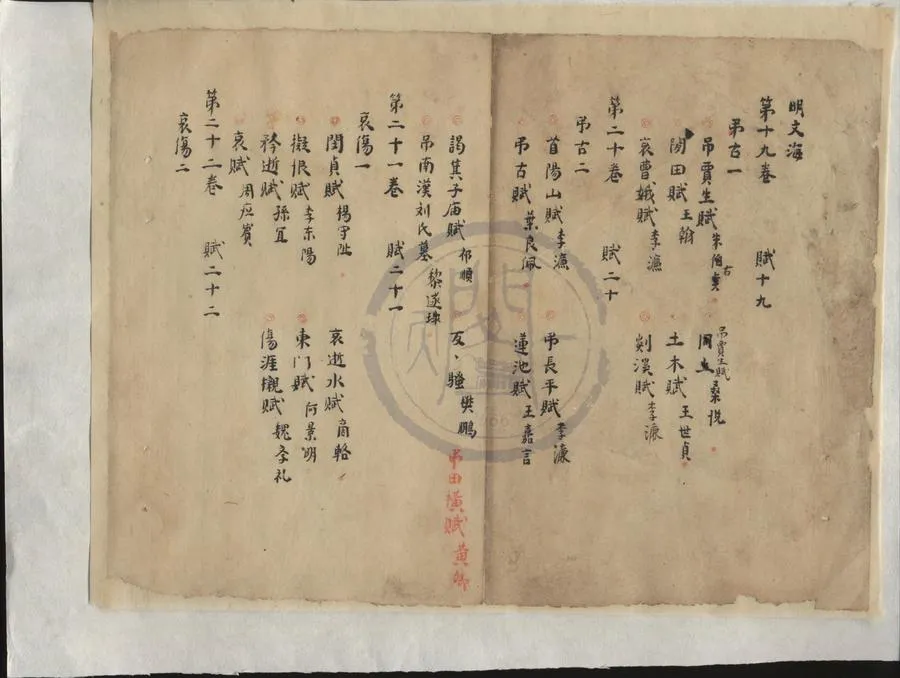 明文海
第十九卷 賦十九
弔古一
吊賈生賦 朱伯 右 同上 吊賈生賦 桑悅
閔田賦 王翰 土木賦 王世貞
哀曹娥賦 李濂 剡溪賦 李濂
第二十卷 賦二十
弔古二
首陽山賦 李濂 弔長平賦 李濂
弔古賦 葉良佩 蓮池賦 王嘉言
謁箕子庙賦 祁順 反、騷 樊鵬 弔田横賦 黃卿
吊南漢刘氏墓 黎遂球
第二十一卷 賦二十一
哀傷一
閔貞賦 楊守阯 哀逝水賦 商輅
擬恨賦 李东陽 東门賦 何景明
矜逝賦 孫宜 傷涯櫬賦 魏孝礼
哀賦 周应賓
第二十二卷 賦二十二
哀傷二